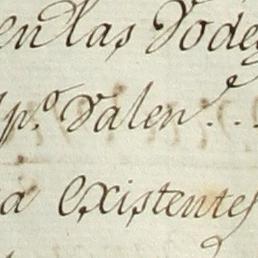 en las Vodeg
po. Valen.e ..
a existentes